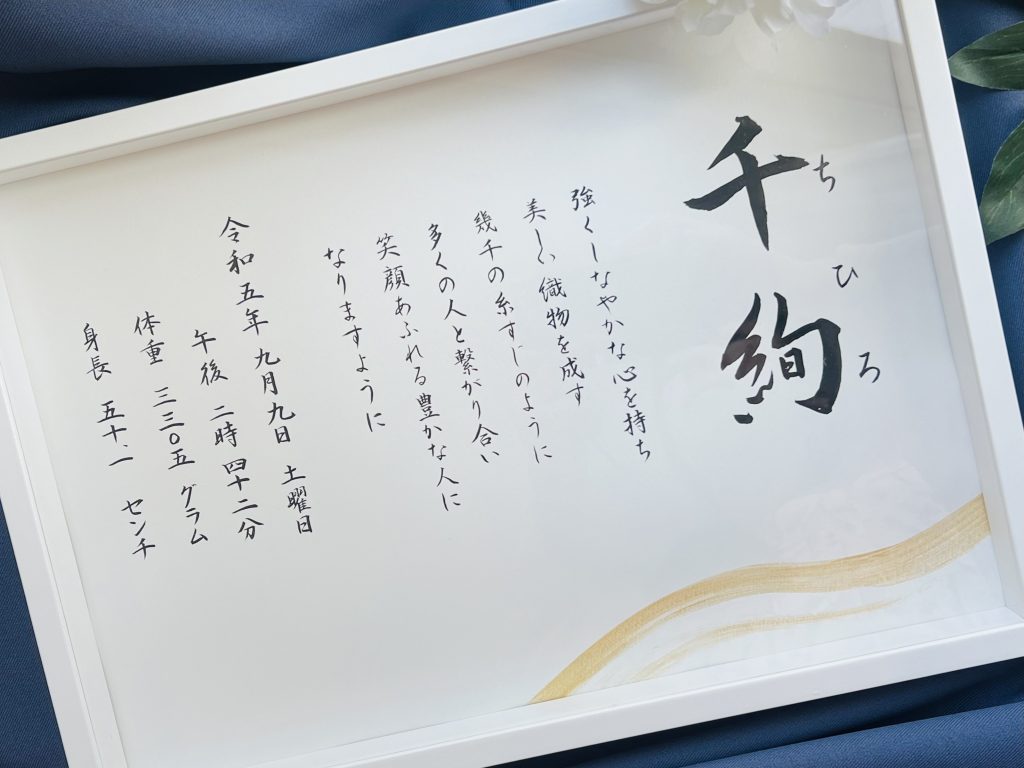 千絢
ちひろ
強くしなやかな心を持ち
美しい織物を成す
幾千の糸すじのように
多くの人と繋がり合い
笑顔あふれる豊かな人に
なりますように
令和五年 九月九日 土曜日
午後 二時 四十二分
体重 三三〇五 グラム
身長 五十、一 センチ